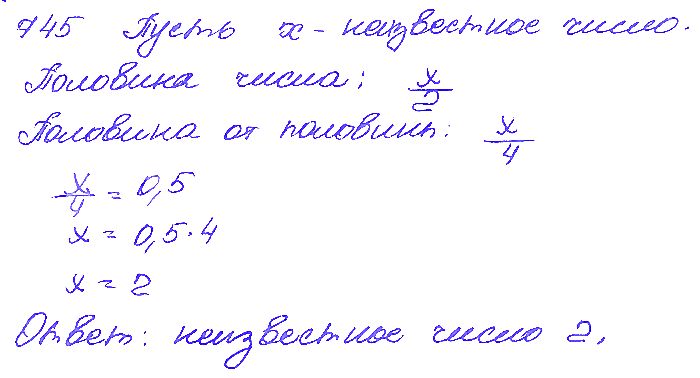 745 Пусть x - неизвестное число.
Половина числа: x/2
Половина от половины: x/4
x/4 = 0,5
x = 0,5 · 4
x = 2
Ответ: неизвестное число 2.